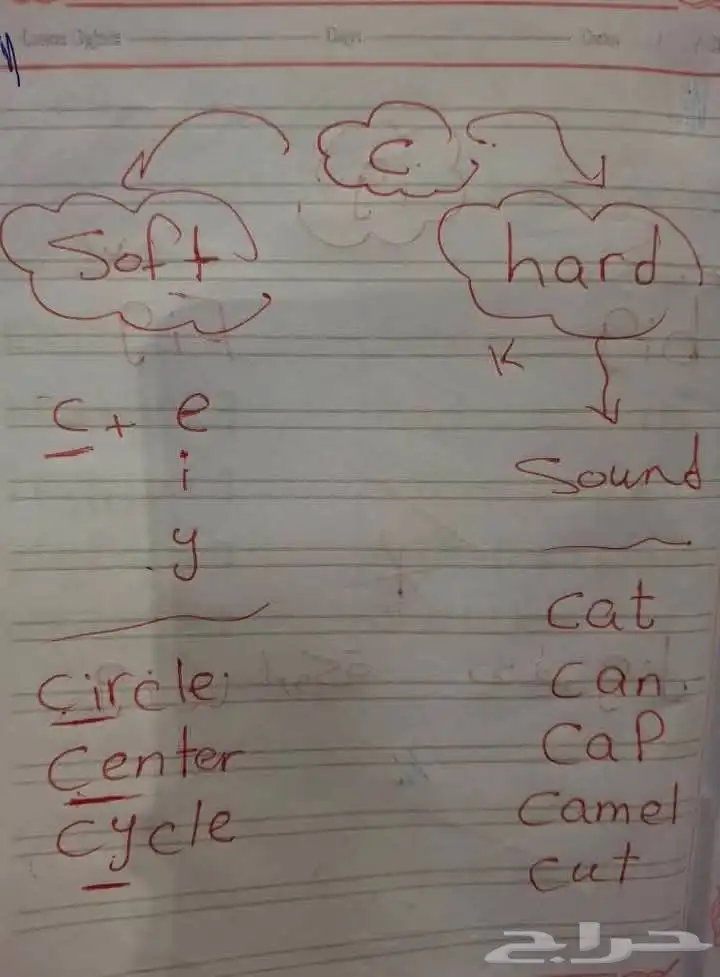 C
Soft
hard
K
Sound
C + e
i
y
cat
can
cap
camel
cut
circle
center
cycle
حراج